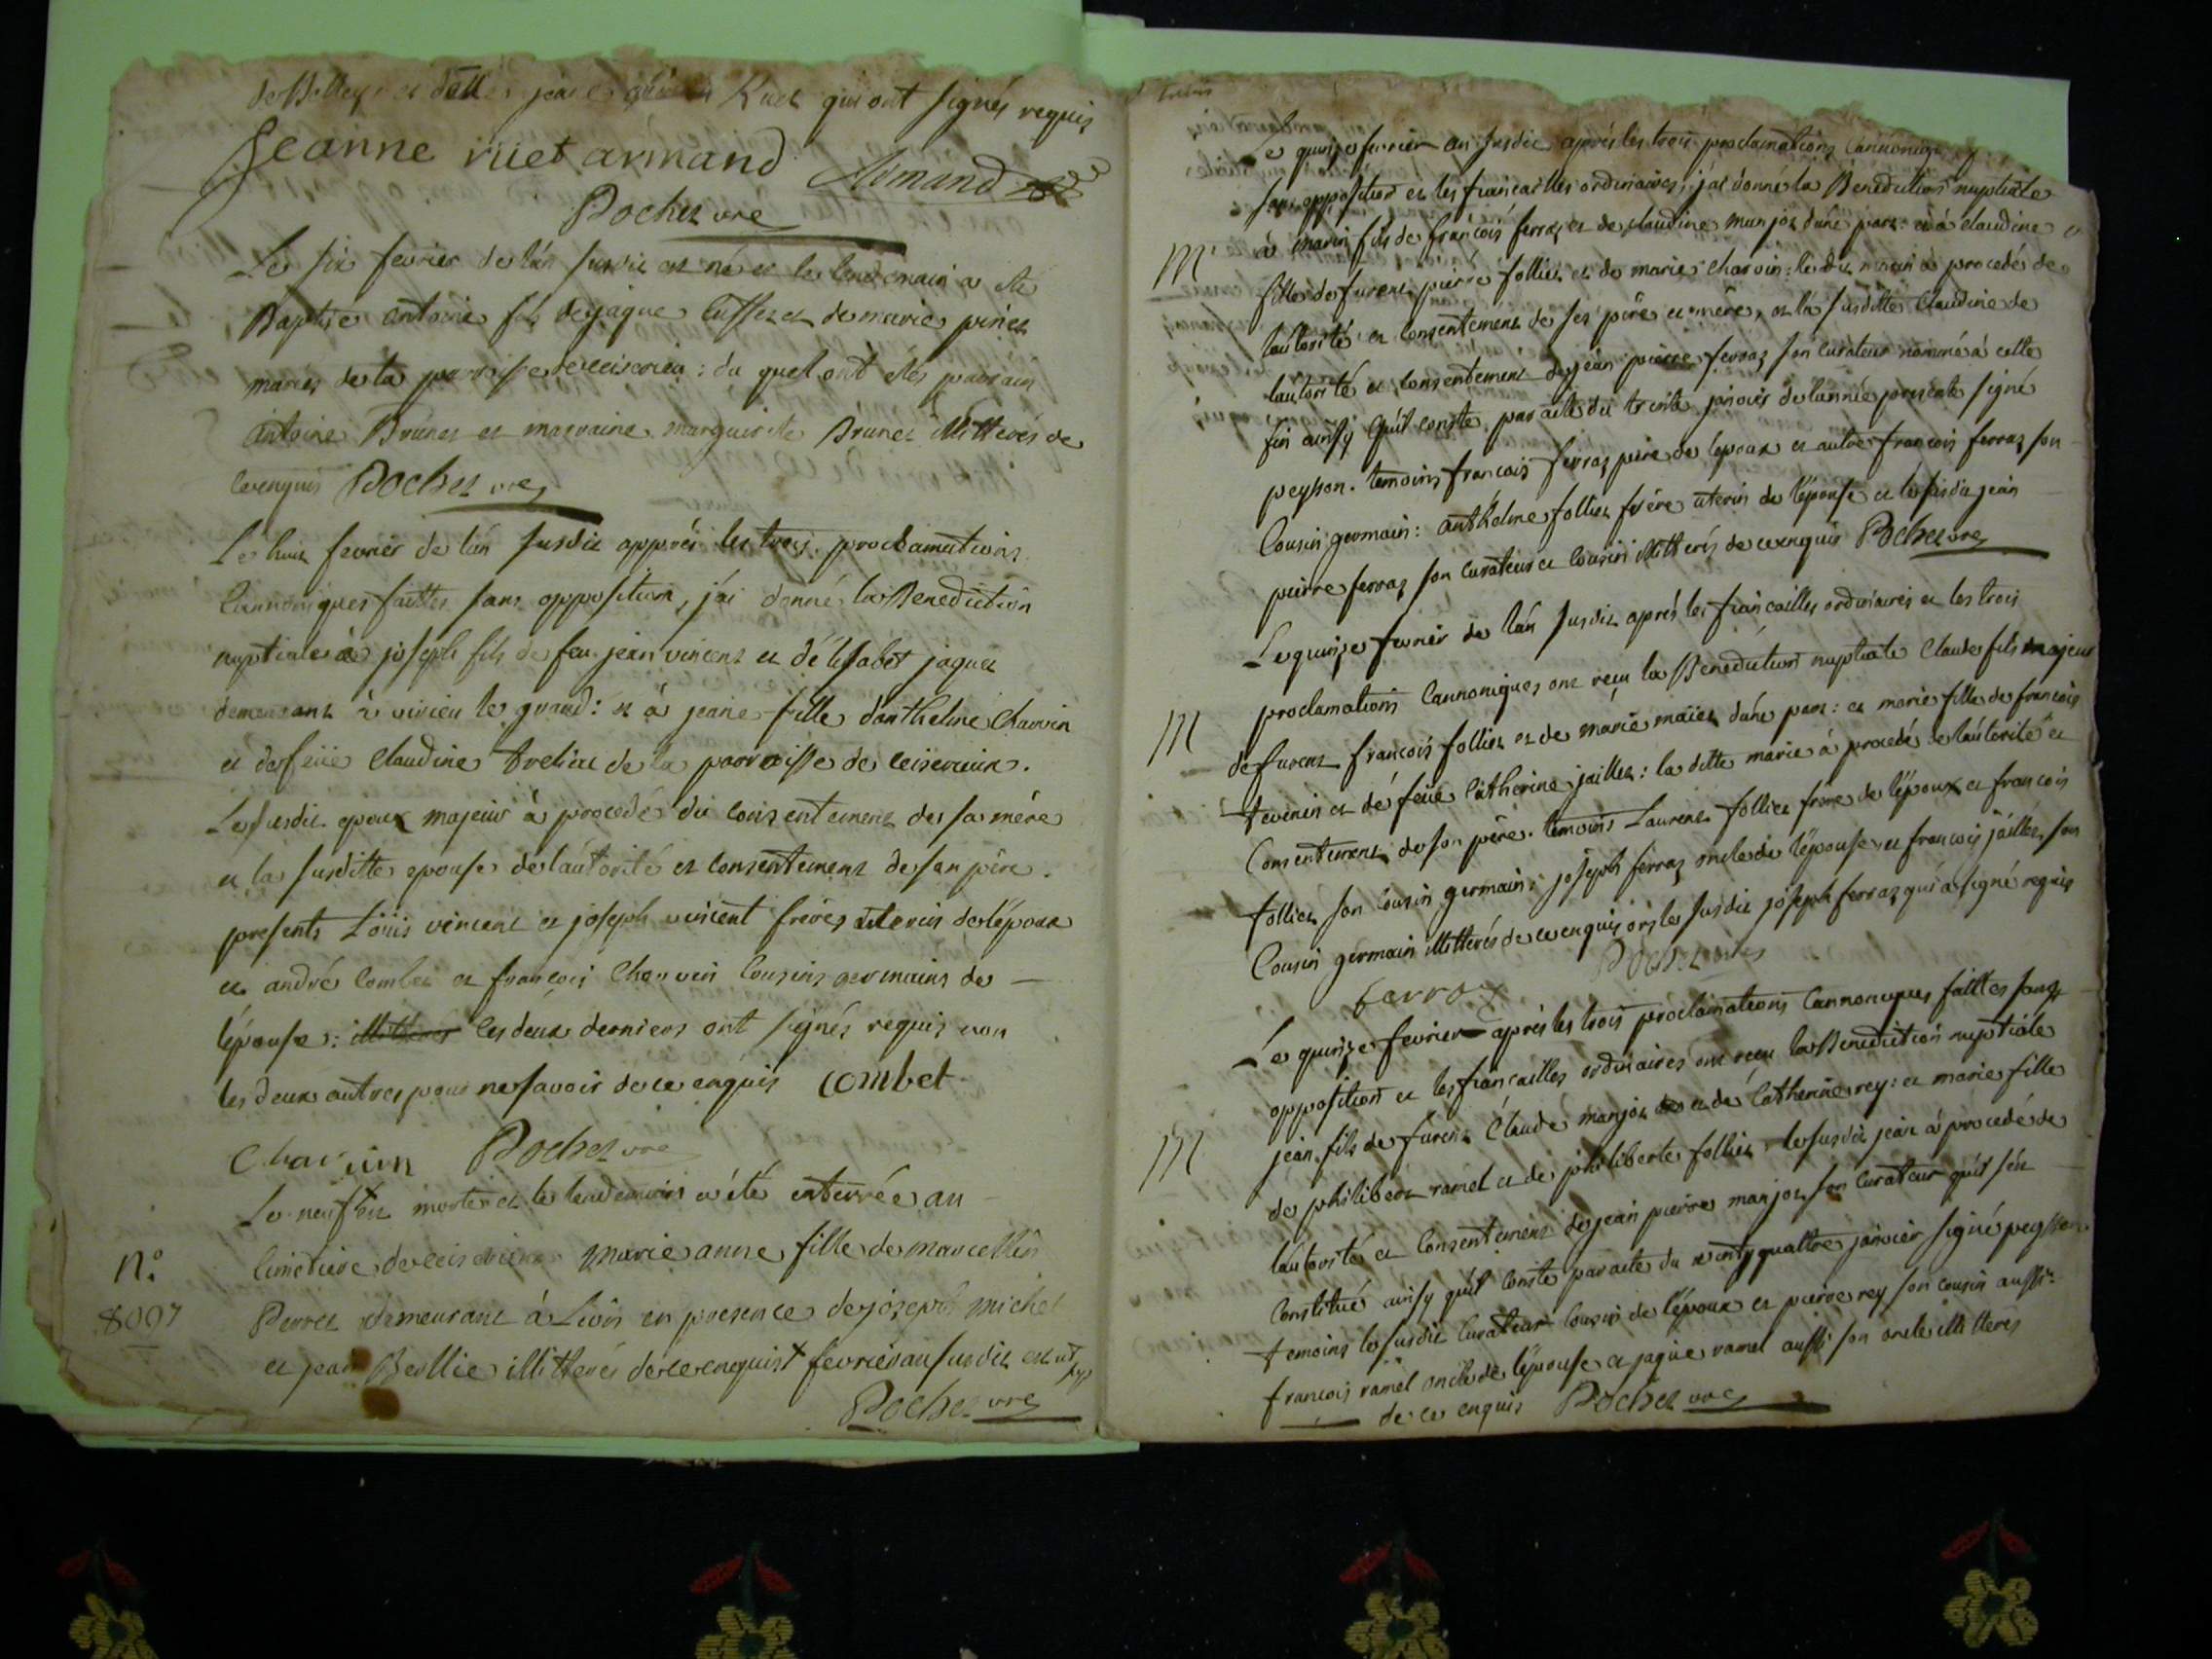 de Belley et qui ont signés requis
Jeanne ruet armand Armand
Pochet vre
Le six fevrier de lán susdit est né et le lendemain a été
Baptisé antoine fils de jaque et de marie pinet
mariés de la parroisse de ceiserieu : du quel ont étés parrain
antoine Brunet et marraine marguerite Brunet illitterés de
ce enquis Pochet vre
Le huit fevrier de lán susdit apprés les trois proclamations
Cannoniques faittes sans opposition, jái donné la Benediction
nuptiale à joseph fils de feu jean vincent et délisabet jaquet
demeurant à virieu le grand : et à jeane fille dantheline Charvin
et de feüe Claudine de la parroisse de ceiserieu .
Le susdit epoux majeur à procedé du consentement de sa mére
et la susditte epouse de láutorité et consentement de son pére .
presents Loüis vincent et joseph vincent fréres uterins de lépoux
et andré Combet et françois Charvin Cousins germains de
lépouse : illitterés les deux derniers ont signés requis non
les deux autres pour ne savoir de ce enquis Combet
Charvin Pochet vre
Le neuf est morte et le lendemain a été enterrée au
n.° Cimetiere de ceiserieu marie anne fille de marcellin
8097 Perret demeurant à Lión en presence de joseph michel
et jean Beollie illitterés de ce enquis + fevrier an susdit est
Pochet vre
Le quinze fevrier an susdit aprés les trois proclamations Cannoniq
sans opposition et les fiancailles ordinaires, jái donné la Benediction nuptiale
M à marin fils de françois ferraz et de claudine manjot dúne part : et à claudine
fille de furent pierre follier et de marie charvin : le dit marin à procedé de
láutorité et consentement de ses pére et mére, et la susditte Claudine de
láutorité et consentement de jean pierre ferraz son curateur nommé à cette
fin ainsy quíl conste par acte du trente janvier de lannée presente signé
peysson . temoins françois ferraz pere de lépoux et autre francois ferraz son
Cousin germain : anthelme follier frére uterin de lépouse et le susdit jean
pierre ferraz son curateur et Cousin illitterés de ce enquis Pochet vre
Le quinze fevrier de lán susdit aprés les fiancailles ordinaires et les trois
proclamations Cannoniques ont reçu la Benediction nuptiale Claude fils majeur
M de furent francois follier et de marie maiet dúne part : et marie fille de françois
tevenin et de feüe Catherine jaillet : la ditte marie à procedé de láutorité et
Consentement de son pére . temoins Laurent follier frére de lépoux et francois
follier son Cousin germain : joseph ferraz oncle de lépouse et francois jáillet son
Cousin germain illitterés de ce enquis ors le susdit joseph ferraz qui à signé requis
ferraz Pochet vre
Le quinze fevrier aprés les trois proclamations Cannoniques faittes sans
opposition et les fiancailles ordinaires ont reçu la Benediction nuptiale
M jean fils de furent Claude manjot et de Catherine rey : et marie fille
de philibert ramel et de philiberte follier le susdit jean à procedé de
láutorité et Consentement de jean pierre manjot son Curateur quíl sén
Constitué ainsy quíl Conste par acte du vingt quattre janvier signé peysson
temoins le susdit Curateur Cousin de lépoux et pierre rey son cousin aussi
francois ramel oncle de lépouse et jaque ramel aussi son oncle illitterés
de ce enquis Pochet vre